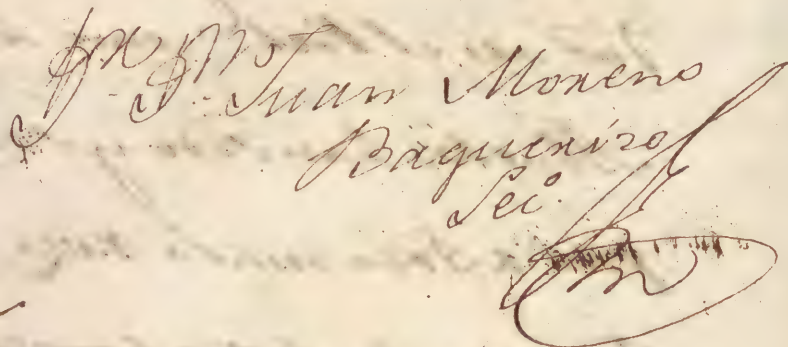 Juan Moreno
Baquerizo
Sec.o